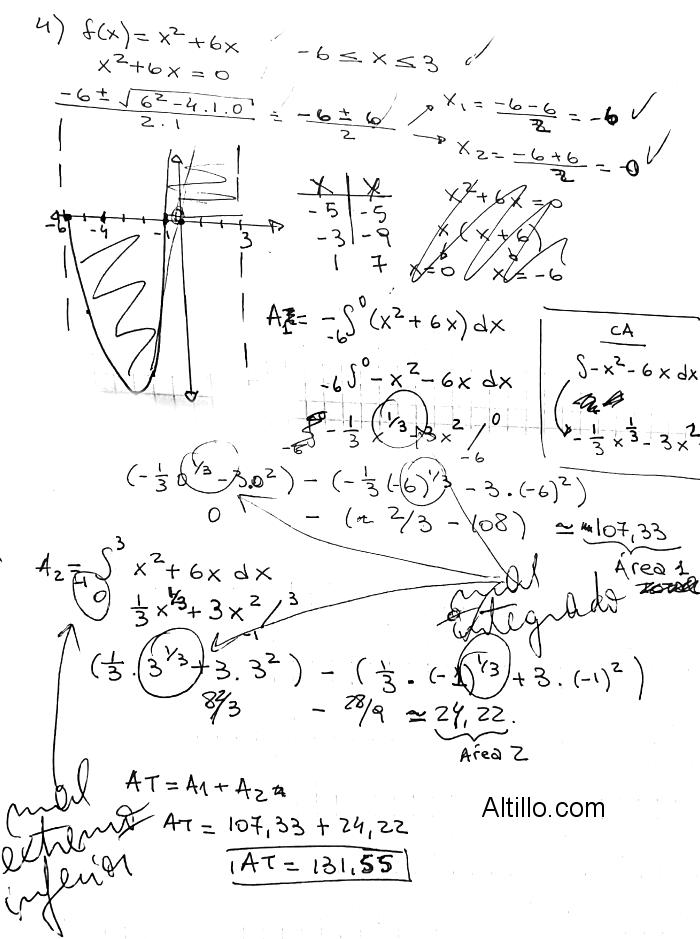 4) f(x) = x² + 6x   -6 ≤ x ≤ 3 ✓
x² + 6x = 0
-6 ± √(6² - 4.1.0) / 2.1 = -6 ± 6 / 2   x₁ = -6-6 / 2 = -6 ✓
x₂ = -6+6 / 2 = -0 ✓
-6 -4 -1 3
x | x
-5 | -5
-3 | -9
1 | 7
x² + 6x = 0
x (x + 6)
x = 0   x = -6
A₁ = - -6∫⁰ (x² + 6x) dx
-6∫⁰ - x² - 6x dx
- 1/3 x^1/3 - 3x² / ⁰ -6
CA
∫ - x² - 6x dx
- 1/3 x^1/3 - 3x²
(- 1/3 0^1/3 - 3.0²) - (- 1/3 (-6)^1/3 - 3.(-6)²)
0   - (- 2/3 - 108) ≃ 107,33
Área 1
mal integrado
A₂ = ∫³ x² + 6x dx
0
1/3 x^1/3 + 3x² / ³ -1
(1/3 . 3^1/3 + 3.3²) - (1/3 . (-1)^1/3 + 3.(-1)²)
82/3 - 28/9 ≃ 24,22.
Área 2
mal extremo inferior
AT = A1 + A2
AT = 107,33 + 24,22
AT = 131,55
Altillo.com